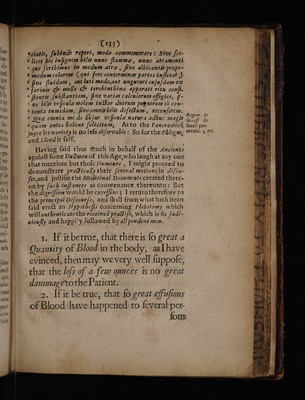 (133)
violis, subinde reperi, modo commemorare: Sive sci-
licet his insignem bilis nunc flammæ, nunc atramenti
quo scribimus in modum atræ, sive albicantis propè-
modum colorem (qui fere conterminas partes inficeat)
sive fluidam, aut luti modo, aut unguenti cujusdam ex
farinis & melle & terebinthina apparati ritu consi-
stentis substantiam, sive varias calculorum effigies, si-
ve bilis vesicula molem instar duorum pugnorum eo con-
tenta tumidam, sive omnibilis defectum, recenserem.
quæ omnia me de hujus vesiculæ natura adhuc magis
quam antea habent solicitum. As to the Pancreatick
juyce its vanity is no less observable: So for the Phlegm,
and blood it self.
Regner. de
Graeff de
Succo pan-
creatic. p.
Having said thus much in behalf of the Ancients
against some of this Age, who laugh at any one
that mentions but those Humours, I might proceed to
demonstrate practically their several motions in disea-
ses, and justifie the Medicinal Documents created there-
on by such instances as countenance thereunto: But
the digression would be excessive; I return therefore to
the principal Discourse, and shall from what hath been
said erect an Hypothesis concerning Phlebotomy which
will authenticate the received practise, which is so judi-
ciously and happily followed by all prudent men.
1. If it be true, that there is so great a
Quantity of Blood in the body, as I have
evinced, then may we very well suppose,
that the loss of a few ounces is no great
dammage to the Patient.
2. If it be true, that so great effusions
of Blood have happened to several per-
sons